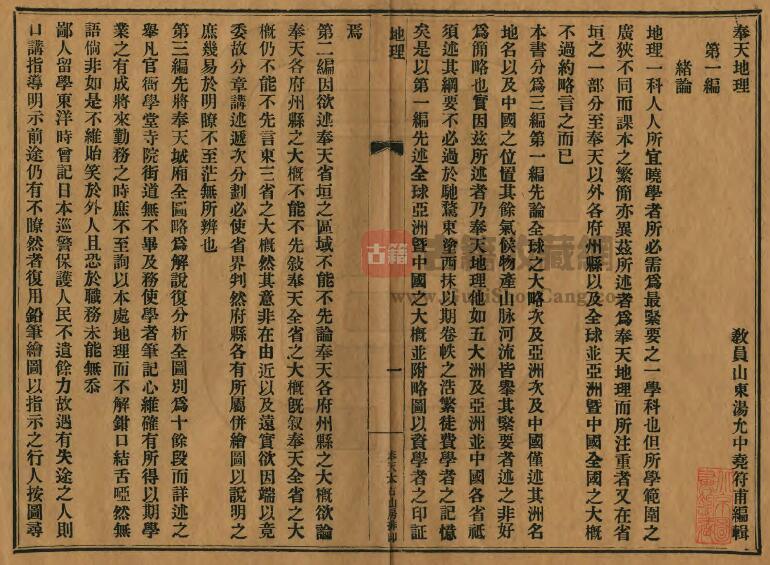 奉天地理
第一編
教員山東湯允中堯符甫編輯
緒論
地理一科人人所宜曉學者所必需為最緊要之一學科也但所學範圍之
廣狹不同而課本之繁簡亦異茲所述者為奉天地理而所注重者又在省
垣之一部分至奉天以外各府州縣以及全球並亞洲暨中國全國之大概
不過約略言之而已
本書分為三編第一編先論全球之大略次及亞洲次及中國僅述其洲名
地名以及中國之位置其餘氣候物產山脉河流皆舉其緊要者述之非好
為簡略也實因茲所述者乃奉天地理他如五大洲及亞洲並中國各省祇
須述其綱要不必過於馳騖東塗西抹以期卷帙之浩繁徒費學者之記憶
矣是以第一編先述全球亞洲暨中國之大概並附略圖以資學者之印証
地理
一
焉
第二編因欲述奉天省垣之區域不能不先論奉天各府州縣之大概欲論
奉天各府州縣之大概不能不先敍奉天全省之大概既敍奉天全省之大
概仍不能不先言東三省之大概然其意非在由近以及遠實欲因端以竟
委故分章講述遞次分劃必使省界判然府縣各有所屬併繪圖以說明之
庶幾易於明瞭不至茫無所辨也
第三編先將奉天城廂全圖略為解說復分析全圖別為十餘段而詳述之
舉凡官衙學堂寺院街道無不畢及務使學者筆記心維確有所得以期學
業之有成將來勤務之時庶不至詢以本處地理而不解鉗口結舌啞然無
語倘非如是不維貽笑於外人且恐於職務未能無忝
鄙人留學東洋時曾記日本巡警保護人民不遺餘力故遇有失途之人則
口講指導明示前途仍有不瞭然者復用鉛筆繪圖以指示之行人按圖尋
古籍